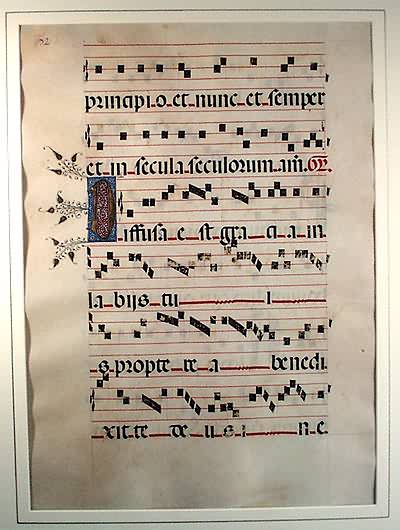 52
principio et nunc et semper
et in secula seculorum am̄. Ov̄.
Diffusa e st gra ci a in
la bijs tu i
s propte re a benedi
xit te de u s i n e